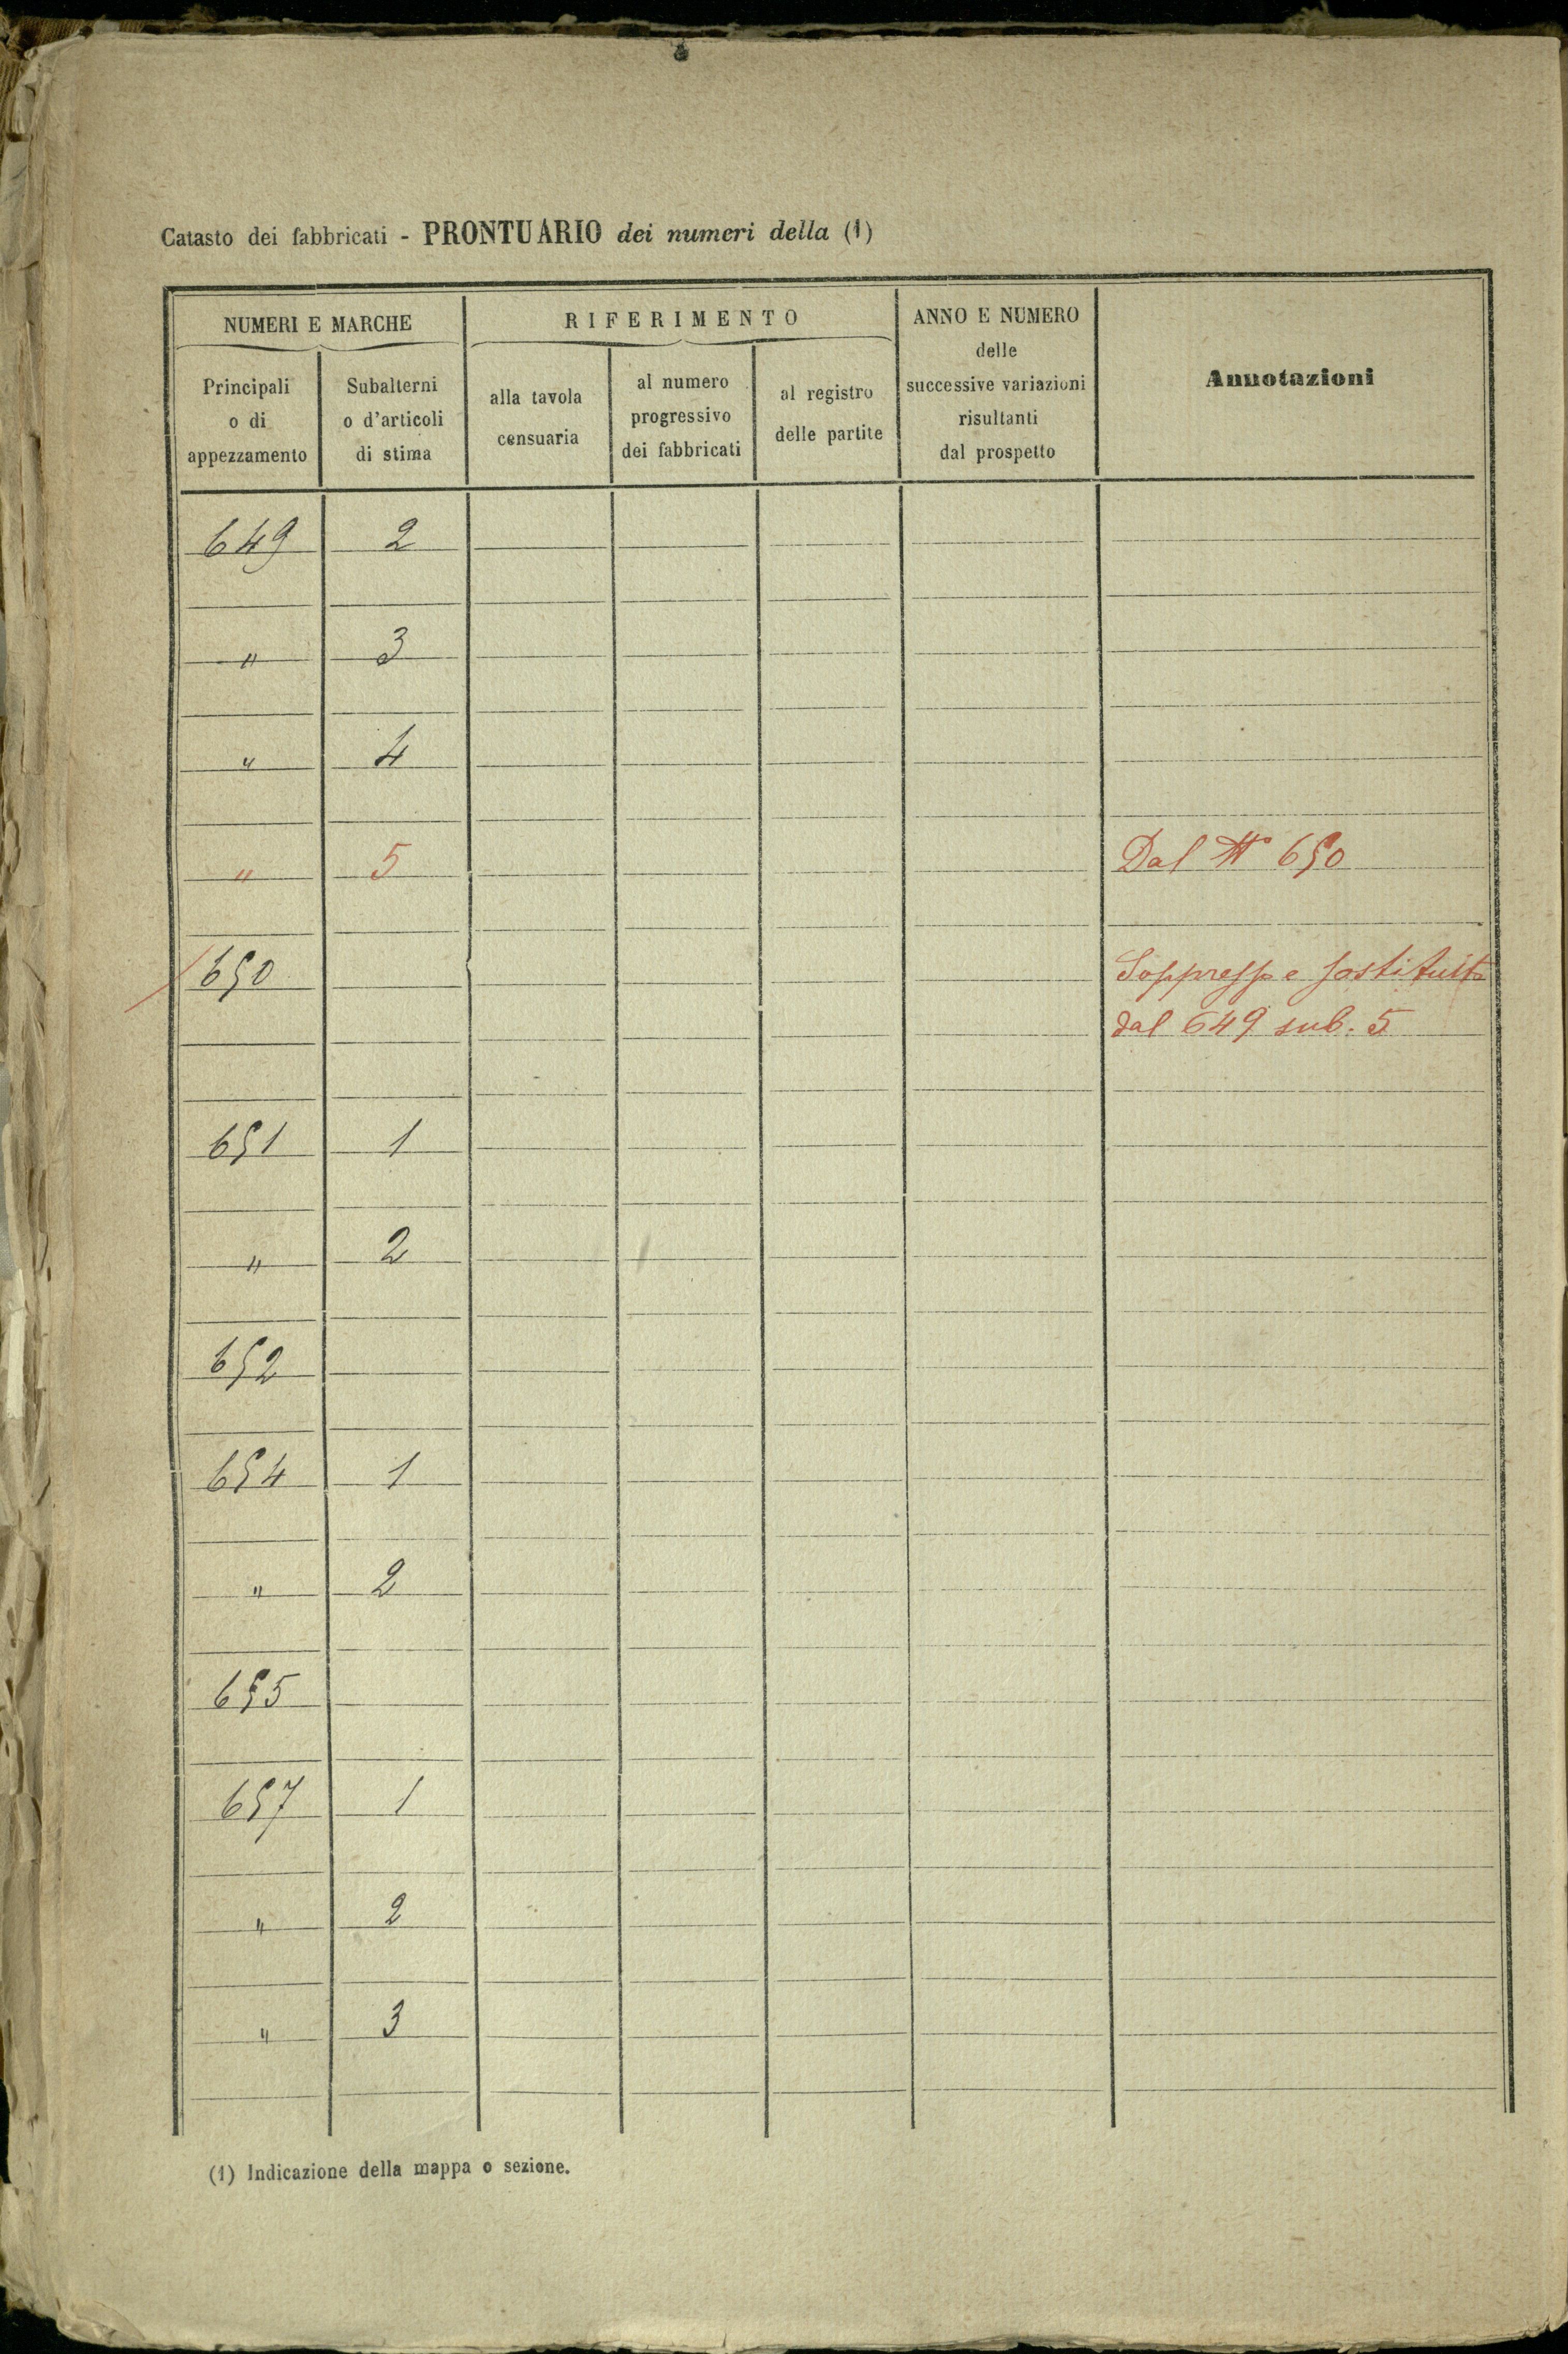 Catasto dei fabbricati - PRONTUARIO dei numeri della (1)
NUMERI E MARCHE
RIFERIMENTO
ANNO E NUMERO
delle
successive variazioni
risultanti
dal prospetto
Annotazioni
Principali
o di
appezzamento
Subalterni
o d'articoli
di stima
alla tavola
censuaria
al numero
progressivo
dei fabbricati
al registro
delle partite
649 2
" 3
" 4
" 5 Dal N° 650
650 Soppresso e sostituito
dal 649 sub. 5
651 1
" 2
652
654 1
" 2
655
657 1
" 2
" 3
(1) Indicazione della mappa o sezione.